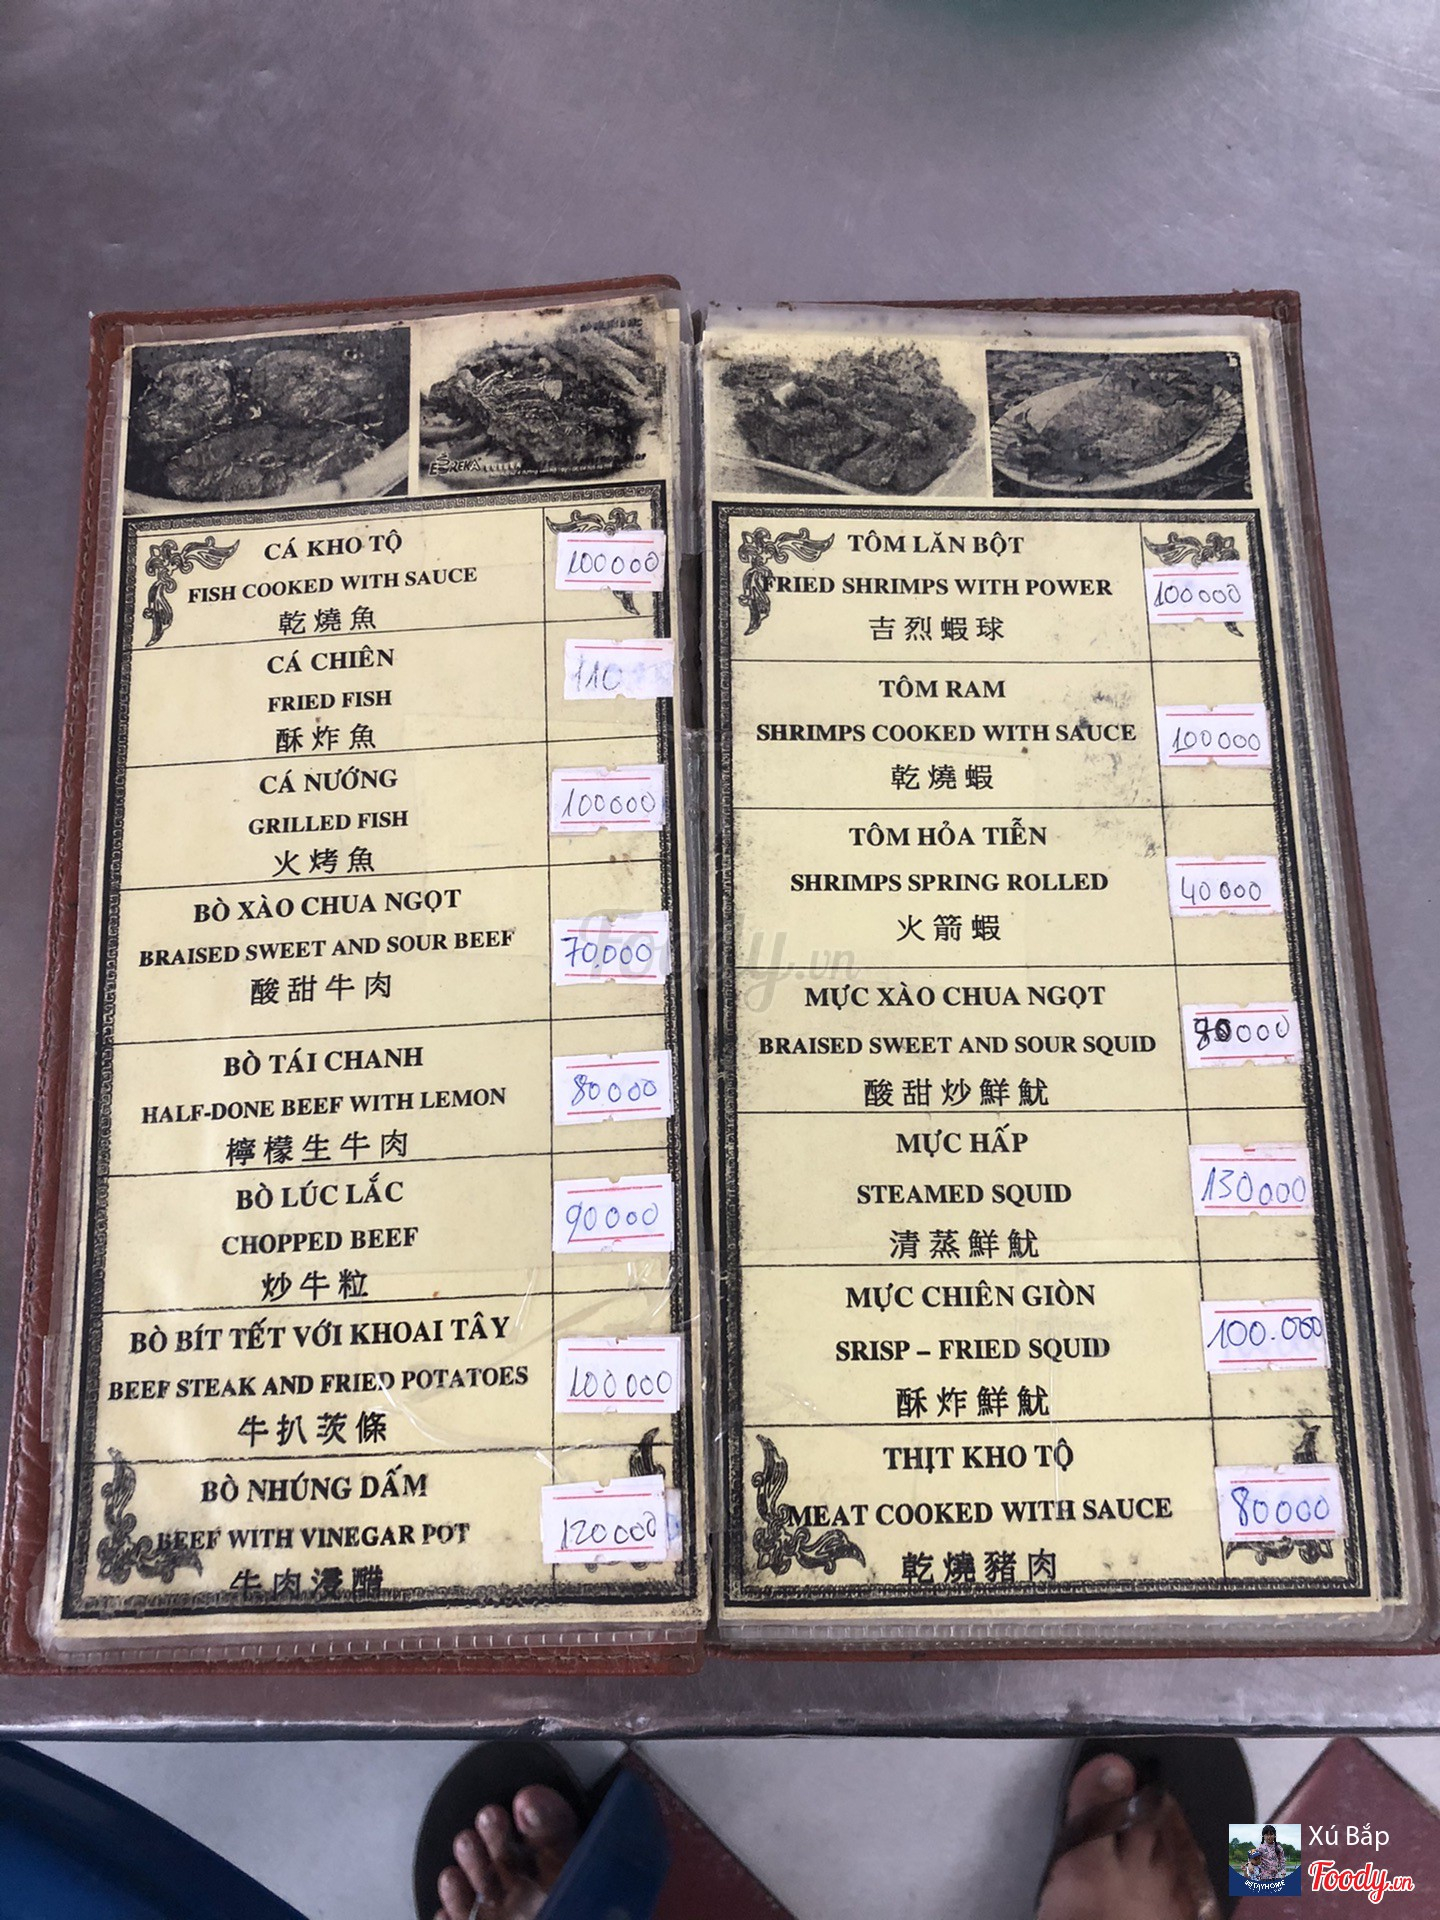 EUREKA
CÁ KHO TỘ
FISH COOKED WITH SAUCE
乾燒魚
100000
CÁ CHIÊN
FRIED FISH
酥炸魚
110
CÁ NƯỚNG
GRILLED FISH
火烤魚
100000
BÒ XÀO CHUA NGỌT
BRAISED SWEET AND SOUR BEEF
酸甜牛肉
70.000
BÒ TÁI CHANH
HALF-DONE BEEF WITH LEMON
檸檬生牛肉
80000
BÒ LÚC LẮC
CHOPPED BEEF
炒牛粒
90000
BÒ BÍT TẾT VỚI KHOAI TÂY
BEEF STEAK AND FRIED POTATOES
牛扒茨條
100000
BÒ NHÚNG DẤM
BEEF WITH VINEGAR POT
牛肉浸醋
120000
TÔM LĂN BỘT
FRIED SHRIMPS WITH POWER
吉烈蝦球
100000
TÔM RAM
SHRIMPS COOKED WITH SAUCE
乾燒蝦
100000
TÔM HỎA TIỄN
SHRIMPS SPRING ROLLED
火箭蝦
40000
MỰC XÀO CHUA NGỌT
BRAISED SWEET AND SOUR SQUID
酸甜炒鮮魷
MỰC HẤP
STEAMED SQUID
清蒸鮮魷
130000
MỰC CHIÊN GIÒN
SRISP – FRIED SQUID
酥炸鮮魷
100.000
THỊT KHO TỘ
MEAT COOKED WITH SAUCE
乾燒豬肉
80000
Foody.vn
Xú Bắp
Foody.vn